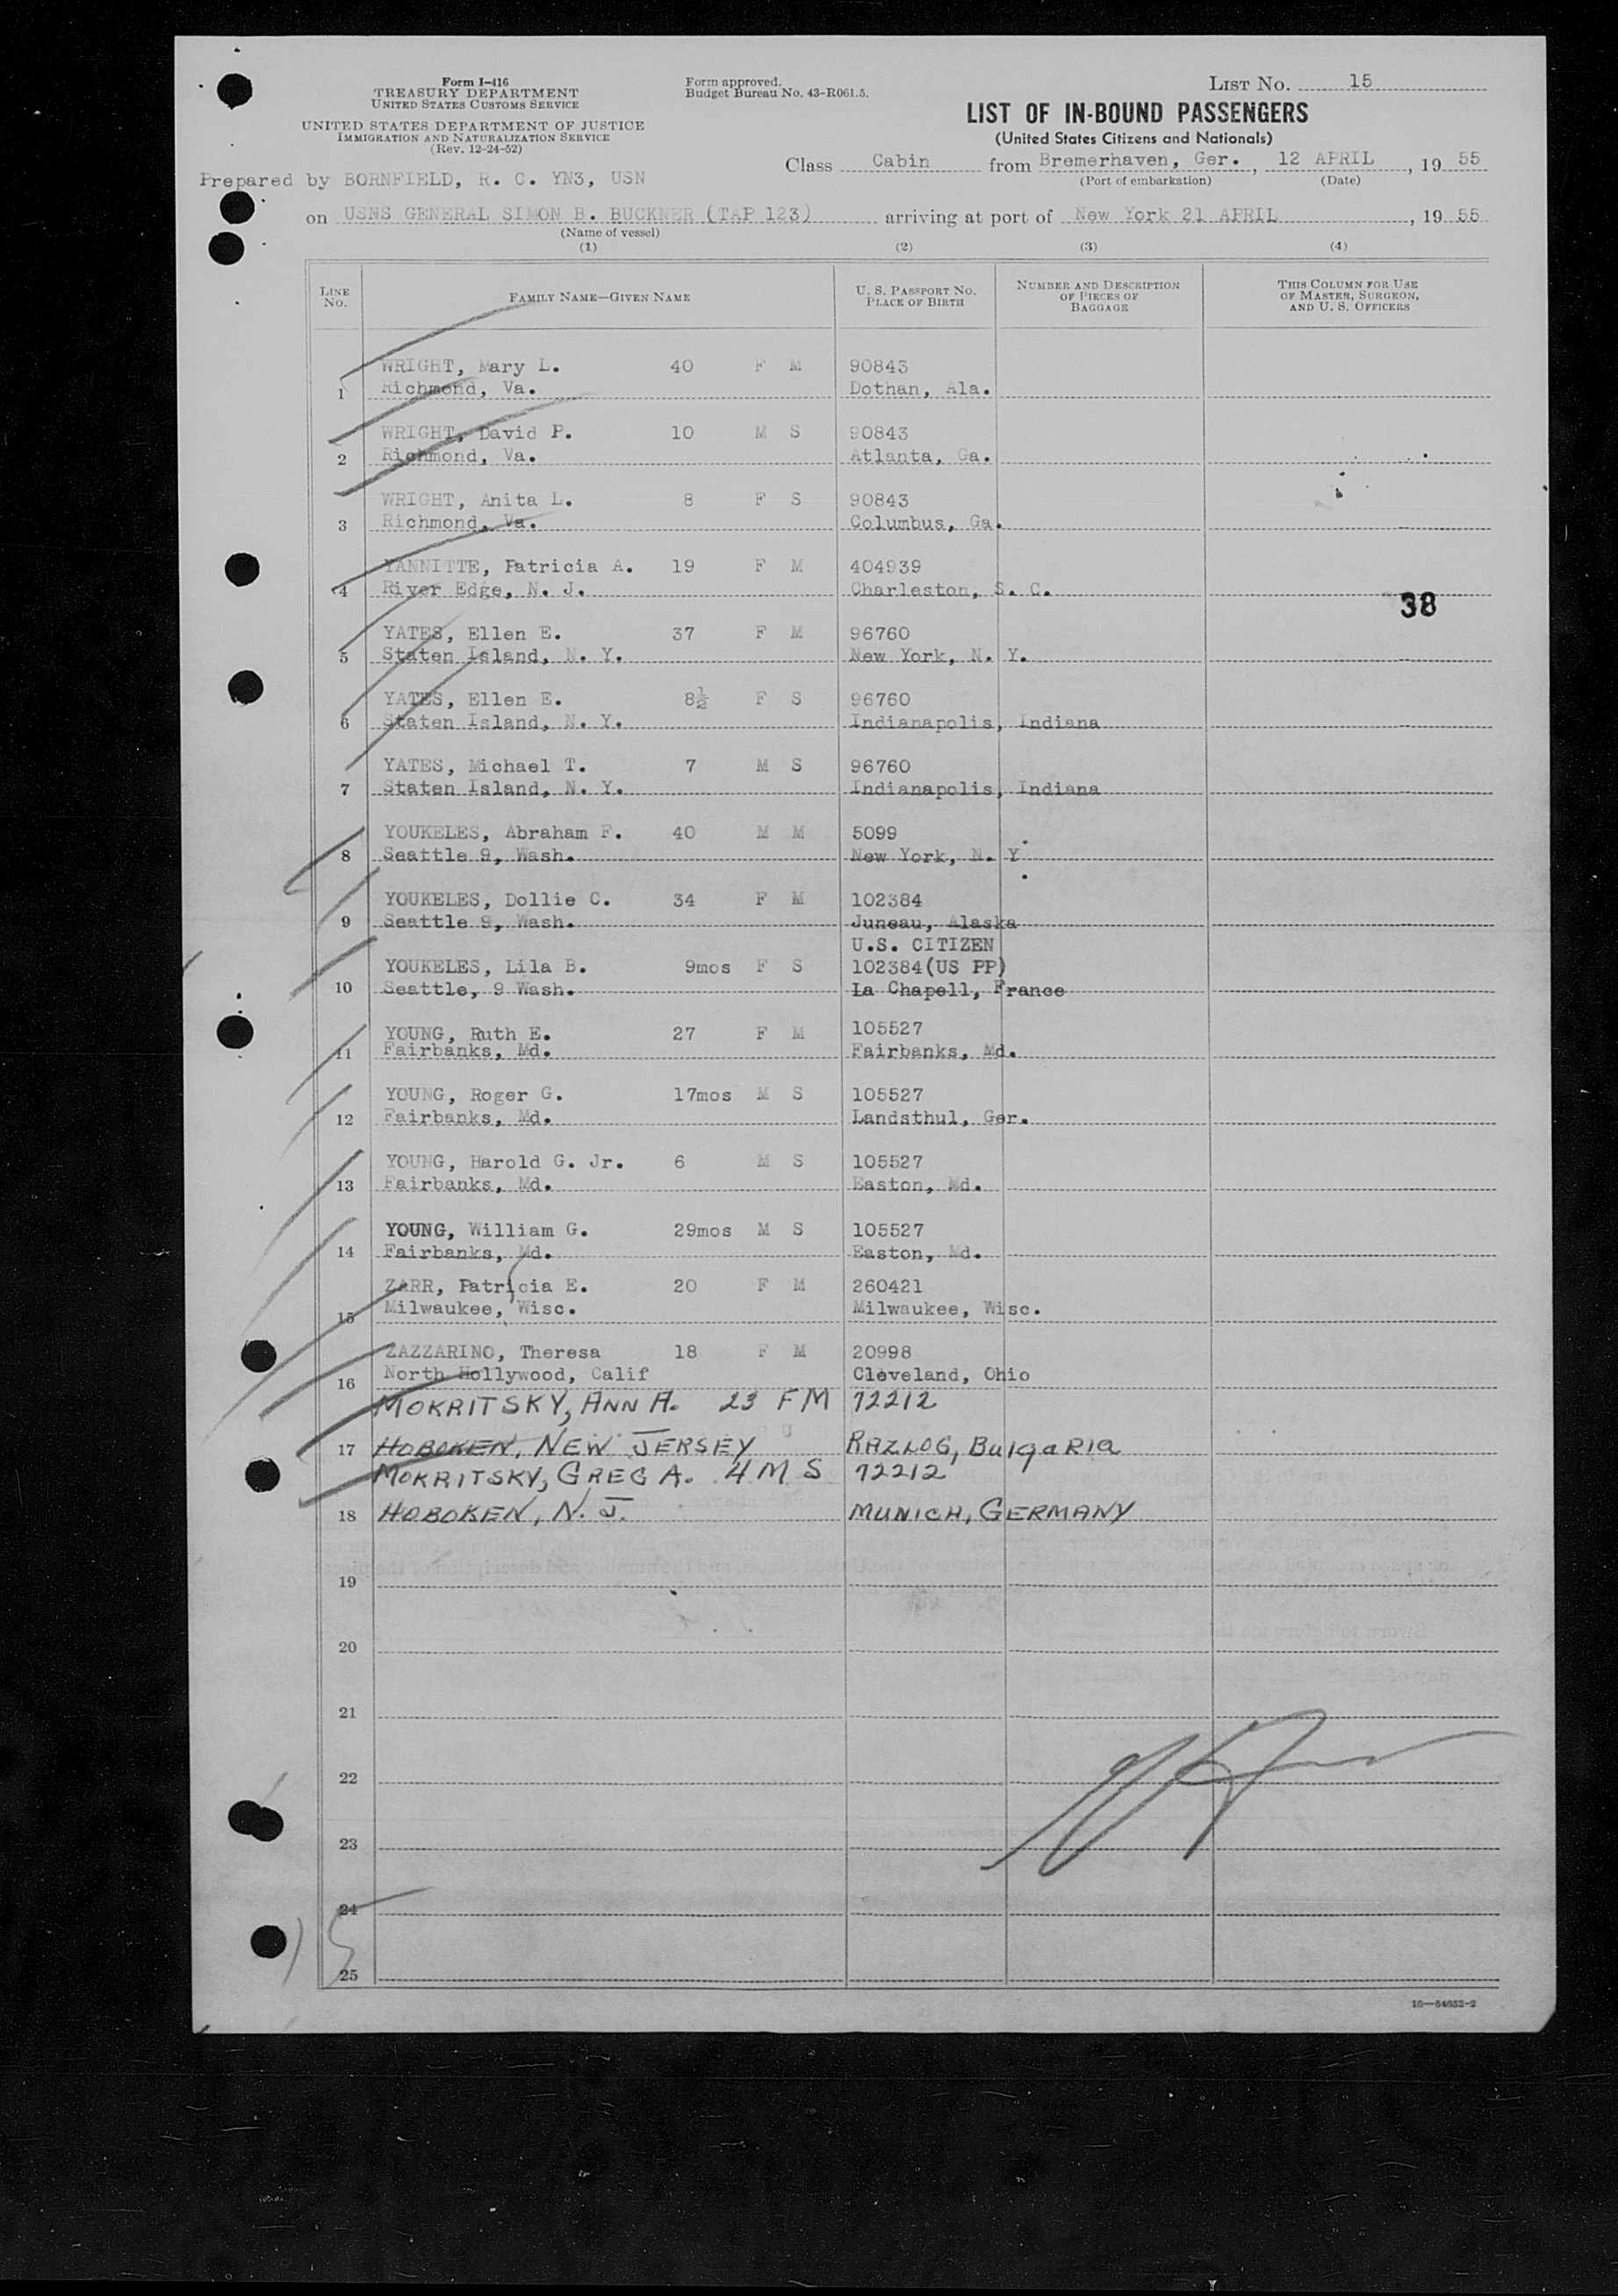 Form I-416
TREASURY DEPARTMENT
UNITED STATES CUSTOMS SERVICE
UNITED STATES DEPARTMENT OF JUSTICE
IMMIGRATION AND NATURALIZATION SERVICE
(Rev. 12-24-52)
Form approved.
Budget Bureau No. 43-R061.5.
LIST NO. 15
LIST OF IN-BOUND PASSENGERS
(United States Citizens and Nationals)
Class Cabin from Bremerhaven, Ger., 12 APRIL, 1955
(Port of embarkation) (Date)
Prepared by BORNFIELD, R. C. YN3, USN
on USNS GENERAL SIMON B. BUCKNER (TAP 123) arriving at port of New York 21 APRIL, 1955
(Name of vessel)
(1) (2) (3) (4)
LINE NO. FAMILY NAME—GIVEN NAME U. S. PASSPORT NO. PLACE OF BIRTH NUMBER AND DESCRIPTION OF PIECES OF BAGGAGE THIS COLUMN FOR USE OF MASTER, SURGEON, AND U. S. OFFICERS
WRIGHT, Mary L. 40 F M 90843
1 Richmond, Va. Dothan, Ala.
WRIGHT, David P. 10 M S 90843
2 Richmond, Va. Atlanta, Ga.
WRIGHT, Anita L. 8 F S 90843
3 Richmond, Va. Columbus, Ga.
YANNITTE, Patricia A. 19 F M 404939
4 River Edge, N. J. Charleston, S. C.
38
YATES, Ellen E. 37 F M 96760
5 Staten Island, N. Y. New York, N. Y.
YATES, Ellen E. 8½ F S 96760
6 Staten Island, N. Y. Indianapolis, Indiana
YATES, Michael T. 7 M S 96760
7 Staten Island, N. Y. Indianapolis, Indiana
YOUKELES, Abraham F. 40 M M 5099
8 Seattle 9, Wash. New York, N. Y.
YOUKELES, Dollie C. 34 F M 102384
9 Seattle 9, Wash. Juneau, Alaska
U.S. CITIZEN
YOUKELES, Lila B. 9mos F S 102384(US PP)
10 Seattle, 9 Wash. La Chapell, France
YOUNG, Ruth E. 27 F M 105527
11 Fairbanks, Md. Fairbanks, Md.
YOUNG, Roger G. 17mos M S 105527
12 Fairbanks, Md. Landsthul, Ger.
YOUNG, Harold G. Jr. 6 M S 105527
13 Fairbanks, Md. Easton, Md.
YOUNG, William G. 29mos M S 105527
14 Fairbanks, Md. Easton, Md.
ZARR, Patricia E. 20 F M 260421
15 Milwaukee, Wisc. Milwaukee, Wisc.
ZAZZARINO, Theresa 18 F M 20998
16 North Hollywood, Calif Cleveland, Ohio
MOKRITSKY, ANN A. 23 F M 72212
17 HOBOKEN, NEW JERSEY RAZLOG, BulgaRia
MOKRITSKY, GREG A. 4 M S 72212
18 HOBOKEN, N. J. MUNICH, GERMANY
19
20
21
22
23
24
25
15
16—54652-2